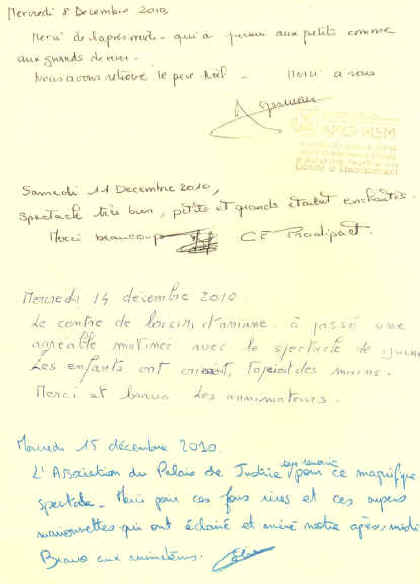 Mercredi 8 Decembre 2010
Merci de l'apres midi - qui à permis aux petits comme
aux grands de rire.
Nous avons retrouvé le pere Noël - Merci a vous
Samedi 11 Decembre 2010,
Spectacle très bien, petits et grands étaient enchantés.
Merci beaucoup CE
Mercredi 14 décembre 2010
Le centre de loisirs à passé une
agreable matinée avec le spectacle de
Les enfants ont tapé des mains.
Merci et bravo Les animateurs.
Mercredi 15 décembre 2010.
L'Association du Palais de Justice vous remercie pour ce magnifique
spectacle. Merci pour ces fous rires et ces supers
marionnettes qui ont éclairé et animé notre après-midi
Bravo aux animateurs.